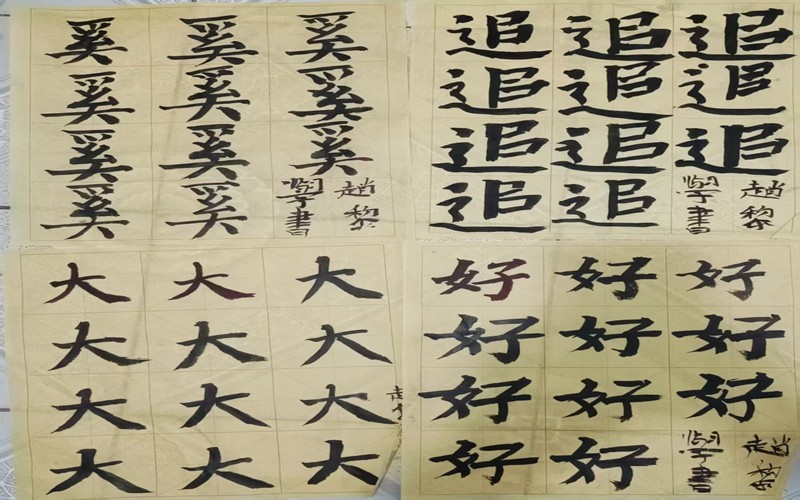 奚 奚 奚
奚 奚 奚
奚 奚 奚
奚 奚
趙黎
學書
追 追 追
追 追 追
追 追 追
追 追
趙黎
學書
大 大 大
大 大 大
大 大 大
大 大 大
好 好 好
好 好 好
好 好 好
好 好
趙黎
學書